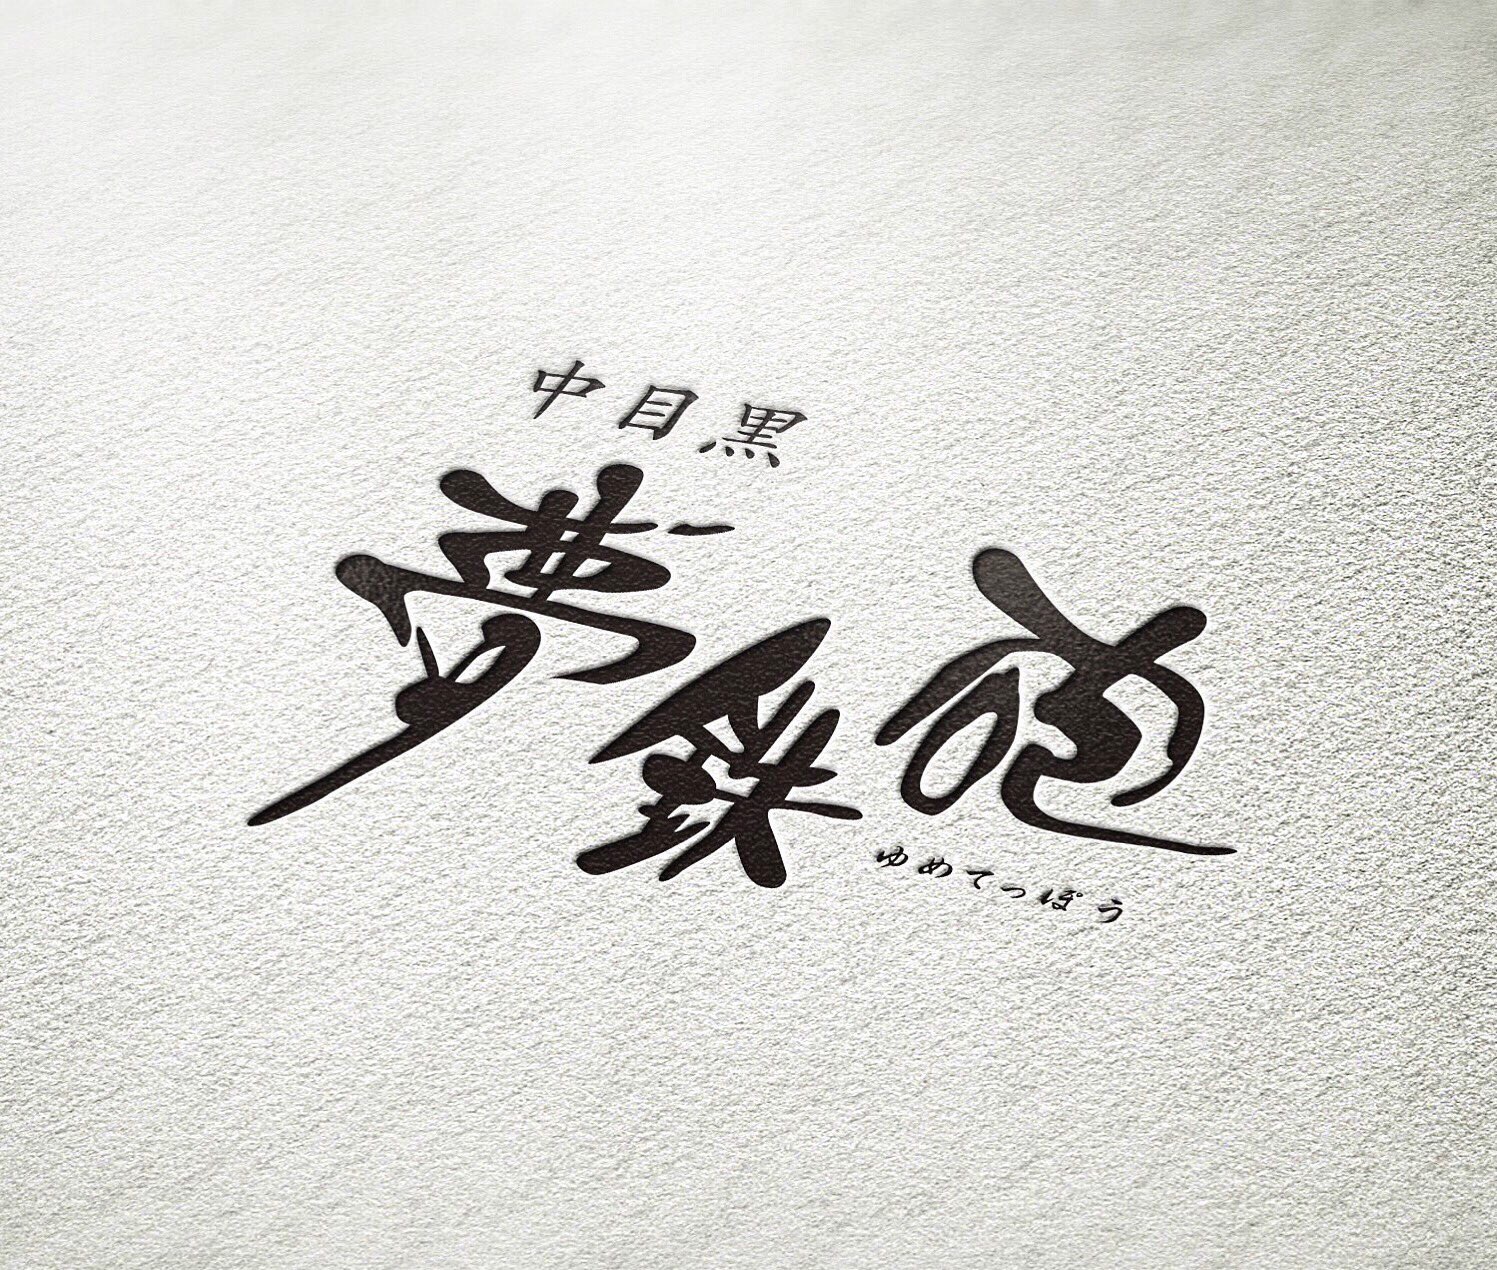 中目黒
夢鉄砲
ゆめてっぽう